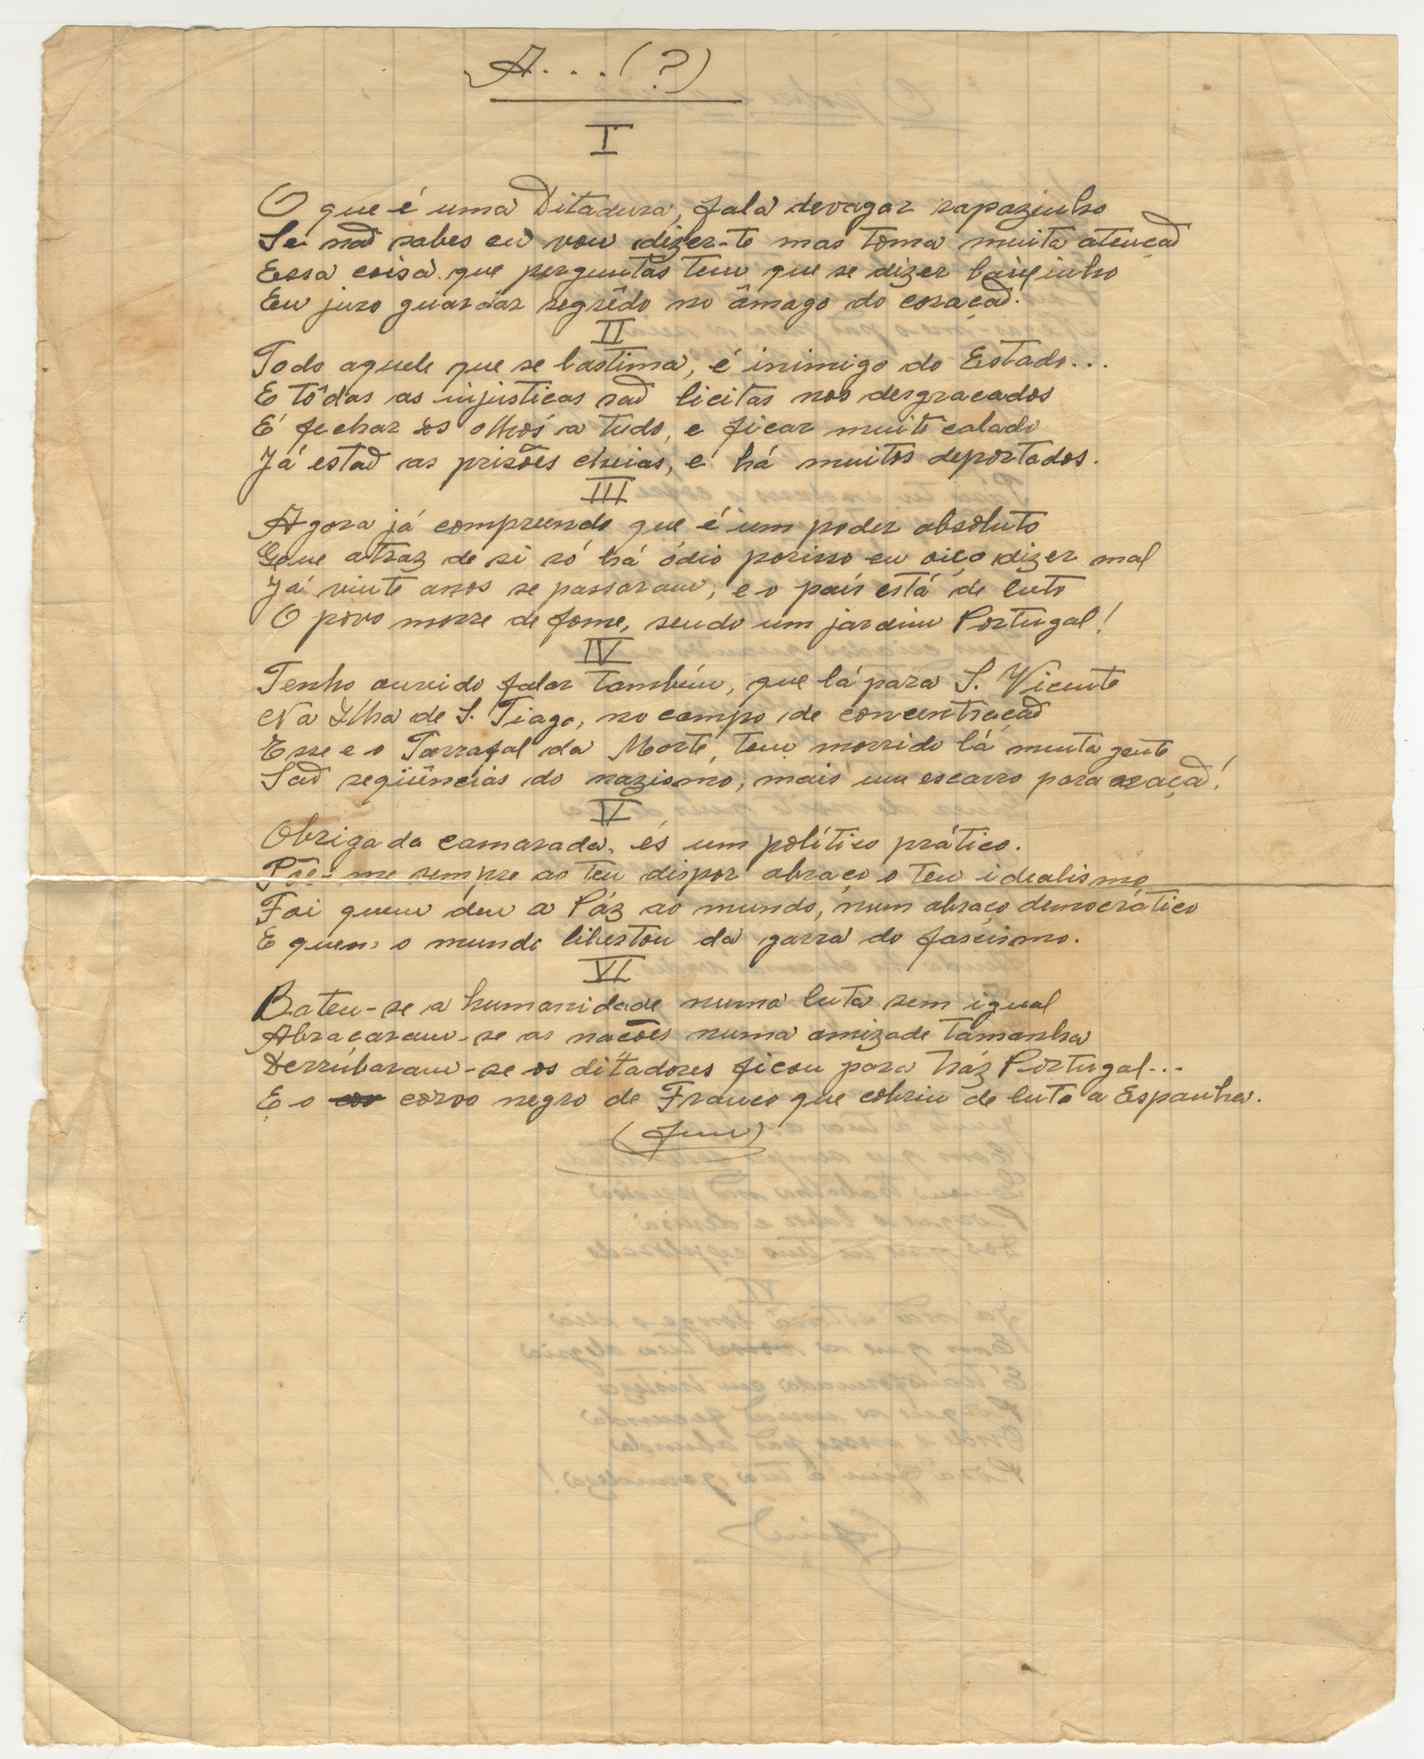 A . . . (?)
I
O que é uma Ditadura, fala devagar rapazinho
Se não sabes eu vou dizer-te mas toma muita atenção
Essa coisa que perguntas tem que se dizer baixinho
Eu juro guardar segrêdo no âmago do coração.
II
Todo aquele que se lastima, é inimigo do Estado...
E tôdas as injusticas são licitas nos desgracados
É fechar os olhos a tudo, e ficar muito calado
Já estão as prisões cheias, e há muitos deportados.
III
Agora já compreendo que é um poder absoluto
Que atraz de si só há ódio porisso eu oiço dizer mal
Já vinte anos se passaram, e o país está de luto
O povo morre de fome, sendo um jardim Portugal!
IV
Tenho ouvido falar também, que lá para S. Vicente
Na Ilha de S. Tiago, no campo de concentração
Esse e o Tarrafal da Morte, tem morrido lá muita gente
São seqüências do nazismo, mais um escarro para a ração!
V
Obrigado camarada, és um político prático.
Põe-me sempre ao teu dispor abraco o teu idealismo
Foi quem deu a Páz ao mundo, num abraço democrático
E quem o mundo libertou da garra do fascismo.
VI
Bateu-se a humanidade numa luta sem igual
Abracaram-se as nações numa amizade tamanha
Derrubaram-se os ditadores ficou para tráz Portugal...
E o corvo negro de Franco que cobriu de luto a Espanha.
(fim)